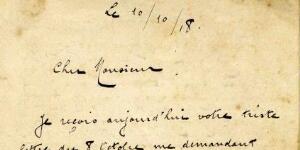 Le 10/10/18.
Cher Monsieur
Je reçois aujourd'hui votre triste
lettre du 8 Octobre me demandant